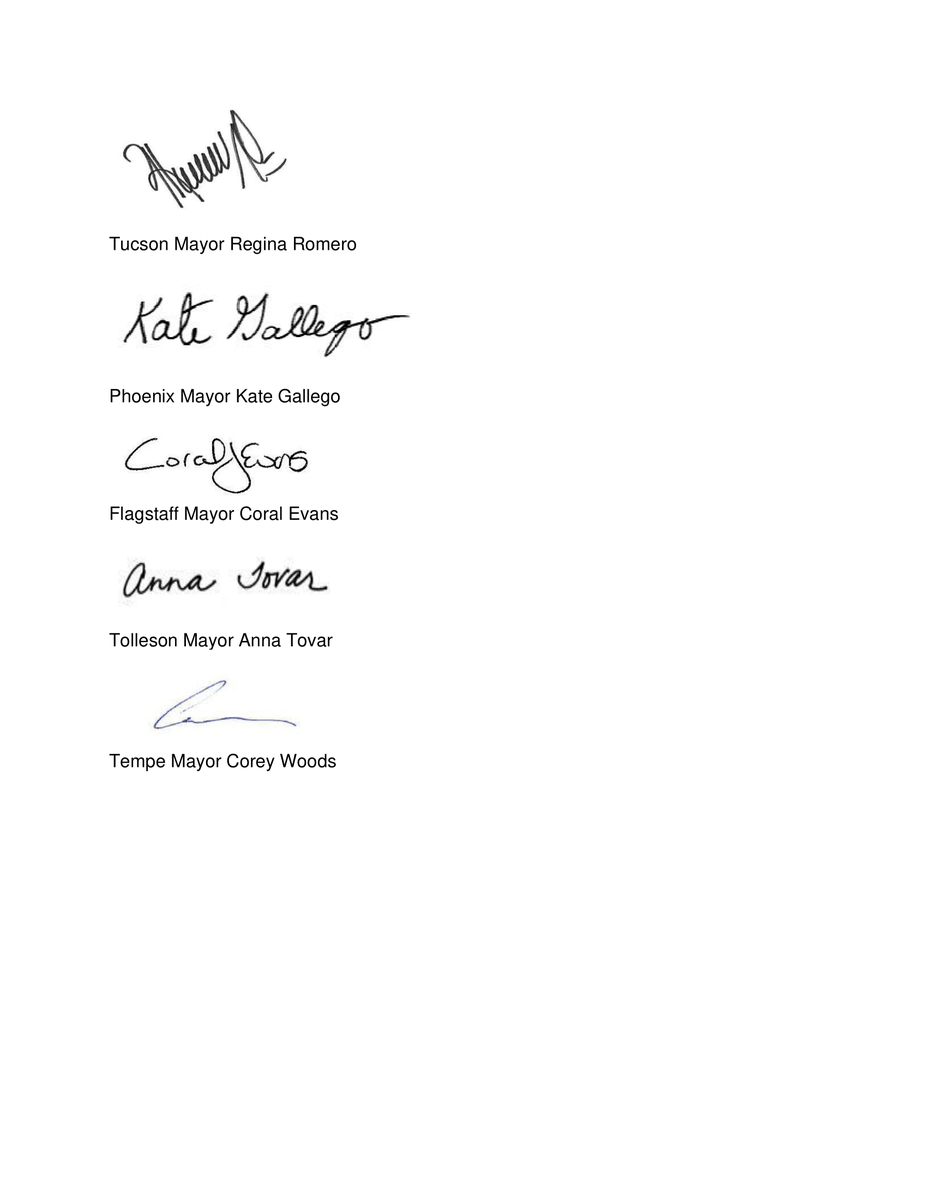 Tucson Mayor Regina Romero
Kate Gallego
Phoenix Mayor Kate Gallego
Coral J Evans
Flagstaff Mayor Coral Evans
Anna Tovar
Tolleson Mayor Anna Tovar
Tempe Mayor Corey Woods